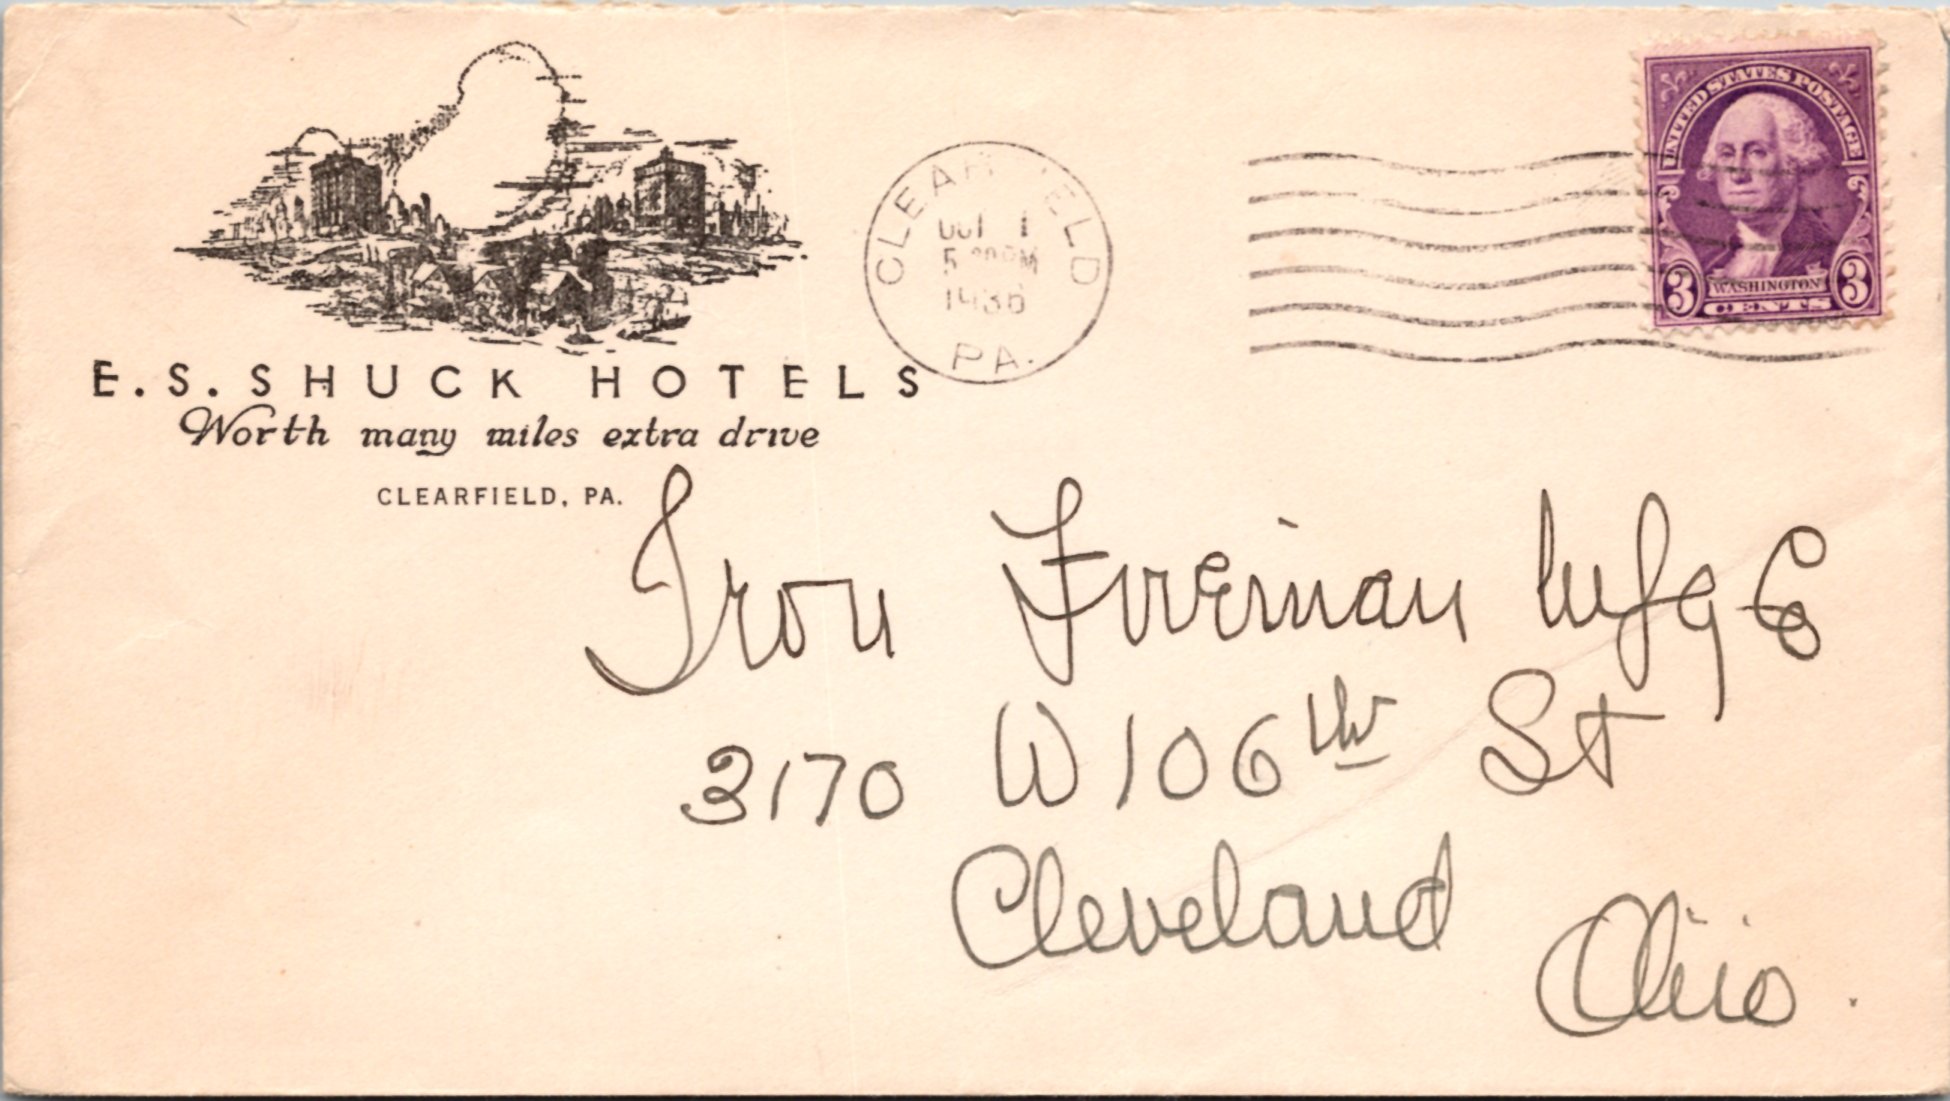 E. S. SHUCK HOTELS
Worth many miles extra drive
CLEARFIELD, PA.
CLEARFIELD
OCT 1
5 PM
1936
PA.
UNITED STATES POSTAGE
3 WASHINGTON 3
CENTS
Iron Fireman Mfg Co
3170 W 106th St
Cleveland
Ohio.